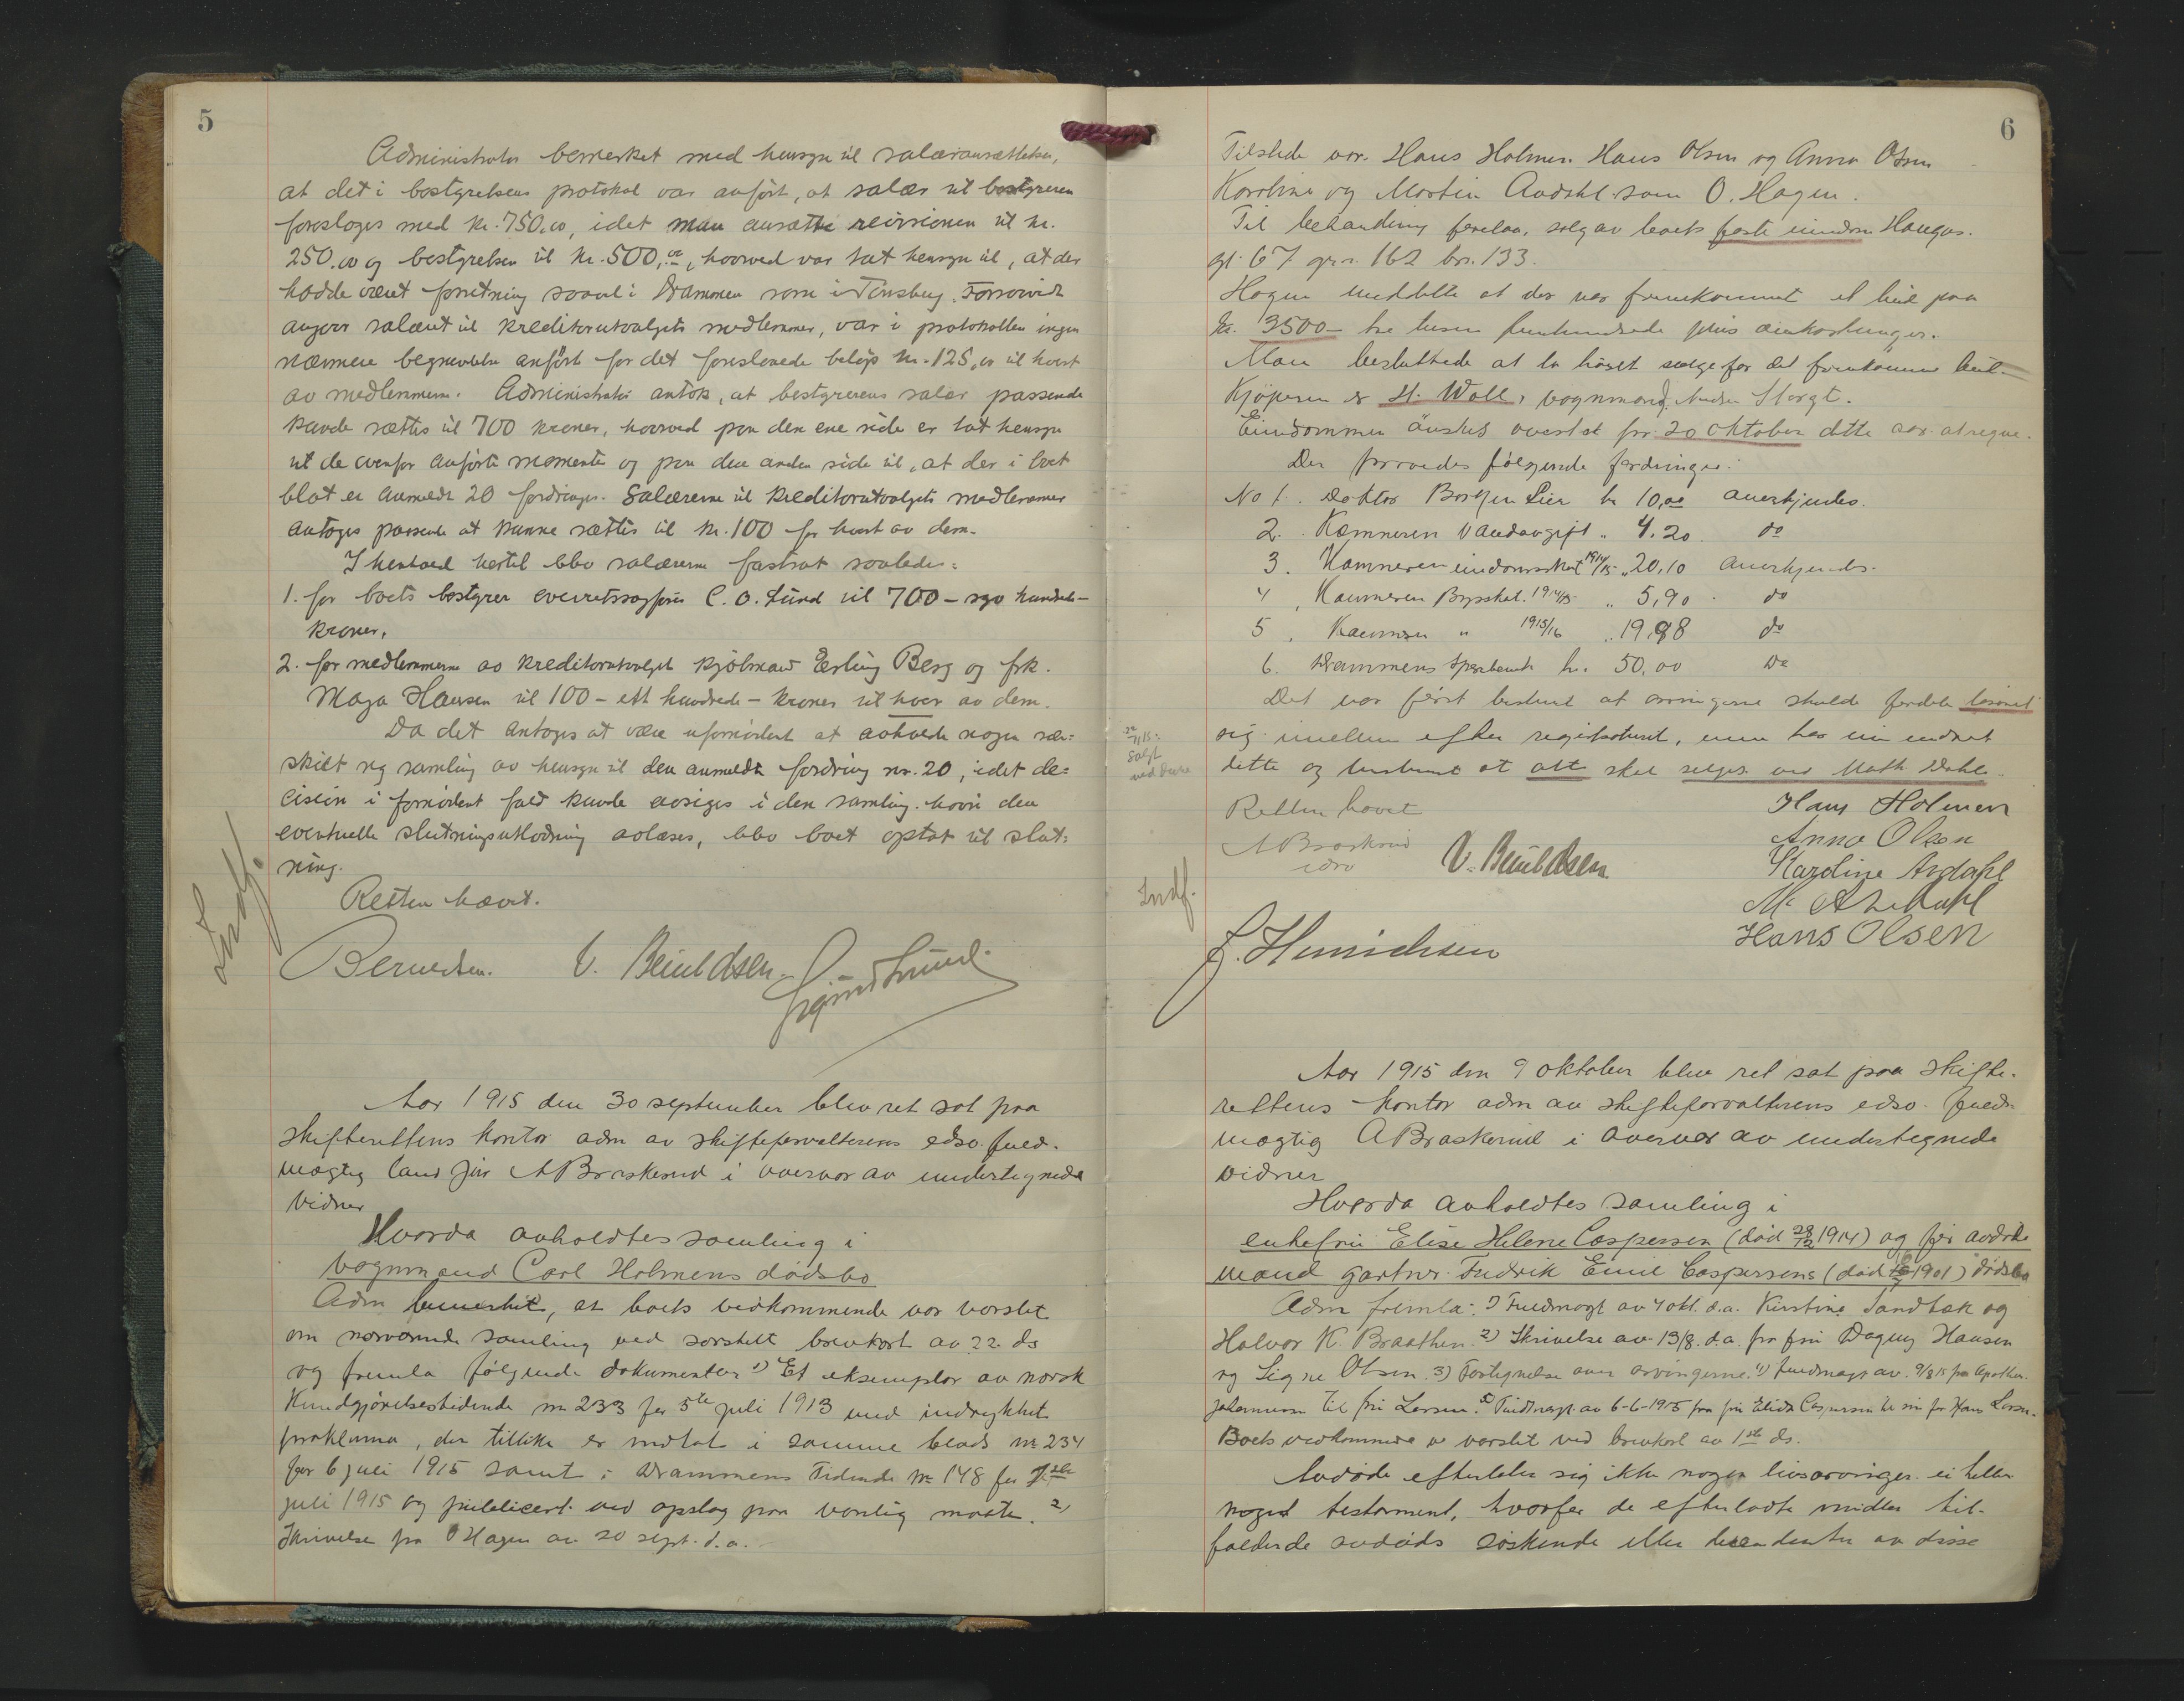 5
Administrator bemerket med hensyn til salæransættelsen,
at det i bostyrelsens protokol var anført, at salær til bestyreren
foresloges med kr. 750,00, idet man ansatte revisionen til kr.
250.00 og bestyrelsen til kr. 500,00, hvorved var tat hensyn til, at der
hadde været forretning saavel i Drammen som i Tønsberg. Forsaavidt
angaar salæret til kreditorutvalgets medlemmer, var i protokollen ingen
nærmere begrundelse anført for det foreslaaede beløp kr. 125,00 til hvert
av medlemmerne. Administrator antok, at bestyrerens salær passende
kunde sættes til 700 kroner, hvorved paa den ene side er tat hensyn
til de ovenfor anførte momenter og paa den anden side til, at der i boet
blot er anmeldt 20 fordringer. Salærerne til kreditorutvalgets medlemmer
antoges passende at kunne sættes til kr. 100 for hvert av dem.
I henhold hertil blev salærerne fastsat saaledes:
1. for boets bestyrer overretssagfører C. O. Lund til 700 – syv hundrede –
kroner,
2. for medlemmerne av kreditorutvalget kjøbmand Erling Berg og frk.
Maga Hansen til 100 – ett hundrede – kroner til hver av dem.
Da det antoges at være ufornødent at avholde nogen sær=
skilt ny samling av hensyn til den anmeldte fordring nr. 20, idet de=
cision i fornødent fald kunde avsiges i den samling, hvori den
eventuelle slutningsutlodning avlæses, blev boet optat til slut=
ning.
Retten hævet.
Indf.
Berntsen. V. Beuldsen. Sigurd Lund.
Aar 1915 den 30 september blev ret sat paa
skifterettens kontor adm av skifteforvalterens edsv. fuld-
mægtig cand jur A Braskerud i overvær av undertegnede
vidner
Hvorda avholdtes samling i
vognmand Carl Holmens dødsbo
Adm bemerket, at boets vedkommende var varslet
om nærværende samling ved særskilt brevkort av 22 ds
og fremla følgende dokumenter 1) Et eksemplar av norsk
Kundgjørelsestidende nr 233 for 5te juli 1913 med indrykket
proklama, der tillike er indtat i samme blads nr 234
for 6 juli 1915 samt i Drammens Tidende nr 148 for
juli 1915 og publicert ved opslag paa vanlig maate. 2)
Skrivelse fra O Hagen av 20 sept. d.a.
6
Tilstede var. Hans Holmen. Hans Olsen og Anna Olsen
Karoline og Martin Aadahl. som O. Hagen.
Til behandling forelaa, salg av boets faste eiendom Haugas.
gt. 67 gnr. 162 bnr. 133.
Hagen meddelte at der var fremkommet et bud paa
kr. 3500 – tre tusen femhundrede plus omkostninger.
Man besluttede at la huset sælge for det fremkomne bud.
Kjøperen er H. Woll, vognmand, Nedre Storgt.
Eiendommen ønskes overtat fra 20 oktober dette aar at regne.
Der prøvedes følgende fordringer:
No 1. Doktor Borgen Lier kr 10,00 anerkjendes.
2. Kæmneren Vandavgift " 4.20 do
3. Kæmneren eiendomsskat 1914/15 " 20,10 anerkjendes.
4 , Kæmneren Byskat. 1914/15 " 5,90 do
5 , Kæmneren " 1915/16 " 19,98 do
6. Drammens Sparebank kr. 50,00 Do
Det var først bestemt at arvingerne skulde fordele løsøret
sig imellem efter registreret, men har nu endret
dette og bestemt at alt skal selges ved Math. Dahl.
Salgt
Retten hævet
A Braskerud
edsv
V. Beuldsen.
Hans Holmen
Anna Olsen
Karoline Ardahl
Hans Olsen
Indf.
J. Hinrichsen
Aar 1915 den 9 oktober blev ret sat paa skifte-
rettens kontor adm av skifteforvalterens edsv. fuld-
mægtig A Braskerud i overvær av undertegnede
vidner
Hvorda avholdtes samling i
enkefru Elise Helene Caspersen (død 28/12 1914) og før avdøde
mand gartner Fredrik Emil Caspersens (død 1901) dødsbo
Adm fremla: 1) Fuldmagt av 4 okt. d.a. Kirstine Sandbak og
Halvor K. Braathen. 2) Skrivelse av 13/8. d.a. fra fru Dagny Hansen
og Signe Olsen. 3) Fortegnelse over arvingerne. 4) fuldmagt av 9/8 15 fra Apotheker
Johannesen til fru Larsen. 5) Fuldmagt av 6-6-1915 fra fru Elida Caspersen til fru Hans Larsen.
Boets vedkommende er varslet ved brevkort av 1ste ds.
Avdøde efterlater sig ikke nogen livsarvinger ei heller
noget testament, hvorfor de efterladte midler til-
falder de avdøds søskende eller descendenter av disse